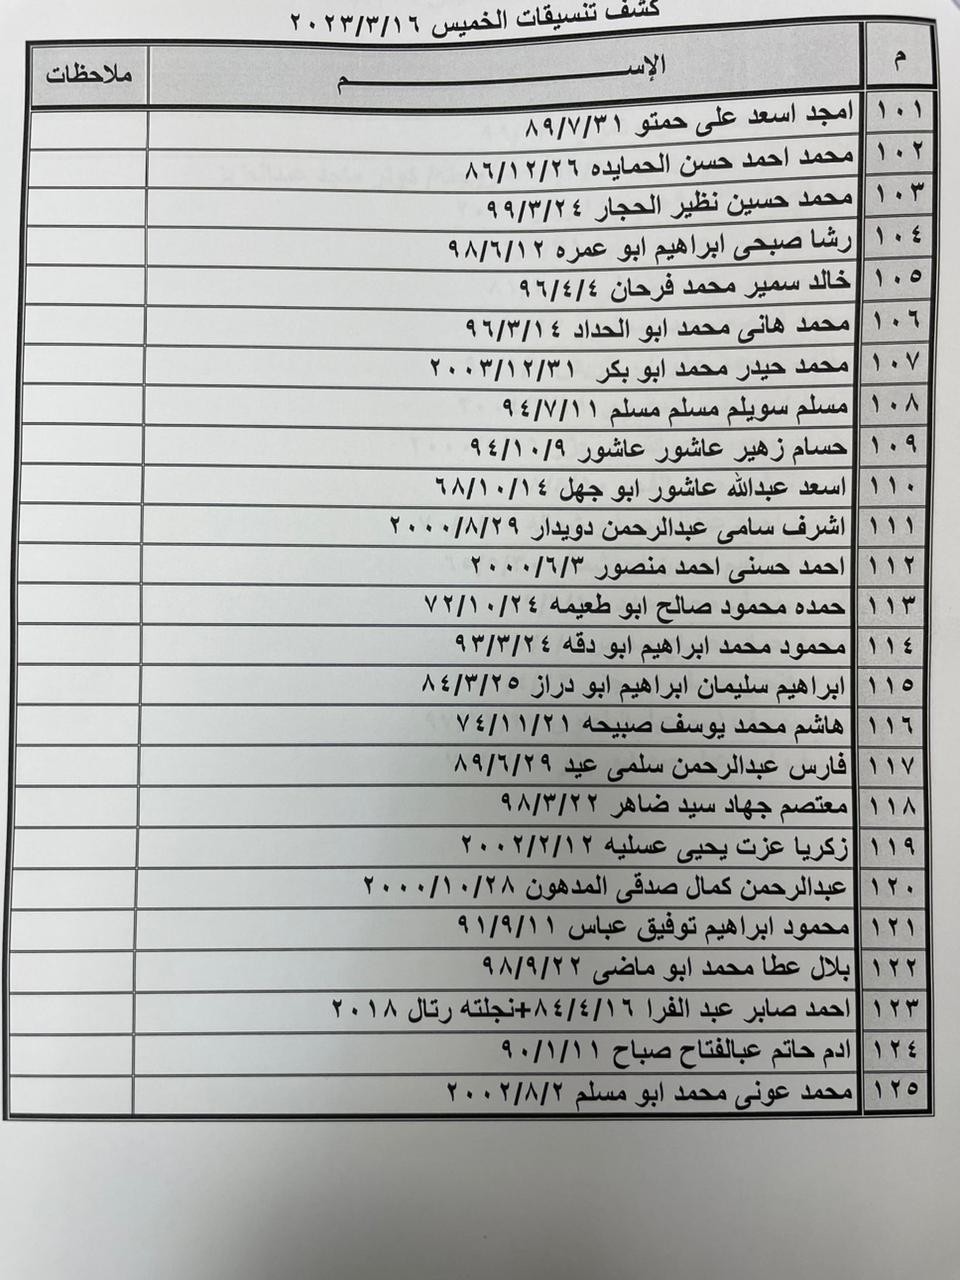 كشف تنسيقات الخميس ٢٠٢٣/٣/١٦
م الإســــــــم ملاحظات
١٠١ امجد اسعد على حمتو ٨٩/٧/٣١
١٠٢ محمد احمد حسن الحمايده ٨٦/١٢/٢٦
١٠٣ محمد حسين نظير الحجار ٩٩/٣/٢٤
١٠٤ رشا صبحى ابراهيم ابو عمره ٩٨/٦/١٢
١٠٥ خالد سمير محمد فرحان ٩٦/٤/٤
١٠٦ محمد هانى محمد ابو الحداد ٩٦/٣/١٤
١٠٧ محمد حيدر محمد ابو بكر ٢٠٠٣/١٢/٣١
١٠٨ مسلم سويلم مسلم مسلم ٩٤/٧/١١
١٠٩ حسام زهير عاشور عاشور ٩٤/١٠/٩
١١٠ اسعد عبدالله عاشور ابو جهل ٦٨/١٠/١٤
١١١ اشرف سامى عبدالرحمن دويدار ٢٠٠٠/٨/٢٩
١١٢ احمد حسنى احمد منصور ٢٠٠٠/٦/٣
١١٣ حمده محمود صالح ابو طعيمه ٧٢/١٠/٢٤
١١٤ محمود محمد ابراهيم ابو دقه ٩٣/٣/٢٤
١١٥ ابراهيم سليمان ابراهيم ابو دراز ٨٤/٣/٢٥
١١٦ هاشم محمد يوسف صبيحه ٧٤/١١/٢١
١١٧ فارس عبدالرحمن سلمى عيد ٨٩/٦/٢٩
١١٨ معتصم جهاد سيد ضاهر ٩٨/٣/٢٢
١١٩ زكريا عزت يحيى عسليه ٢٠٠٢/٢/١٢
١٢٠ عبدالرحمن كمال صدقى المدهون ٢٠٠٠/١٠/٢٨
١٢١ محمود ابراهيم توفيق عباس ٩١/٩/١١
١٢٢ بلال عطا محمد ابو ماضى ٩٨/٩/٢٢
١٢٣ احمد صابر عبد الفرا ٨٤/٤/١٦+نجلته رتال ٢٠١٨
١٢٤ ادم حاتم عبالفتاح صباح ٩٠/١/١١
١٢٥ محمد عونى محمد ابو مسلم ٢٠٠٢/٨/٢